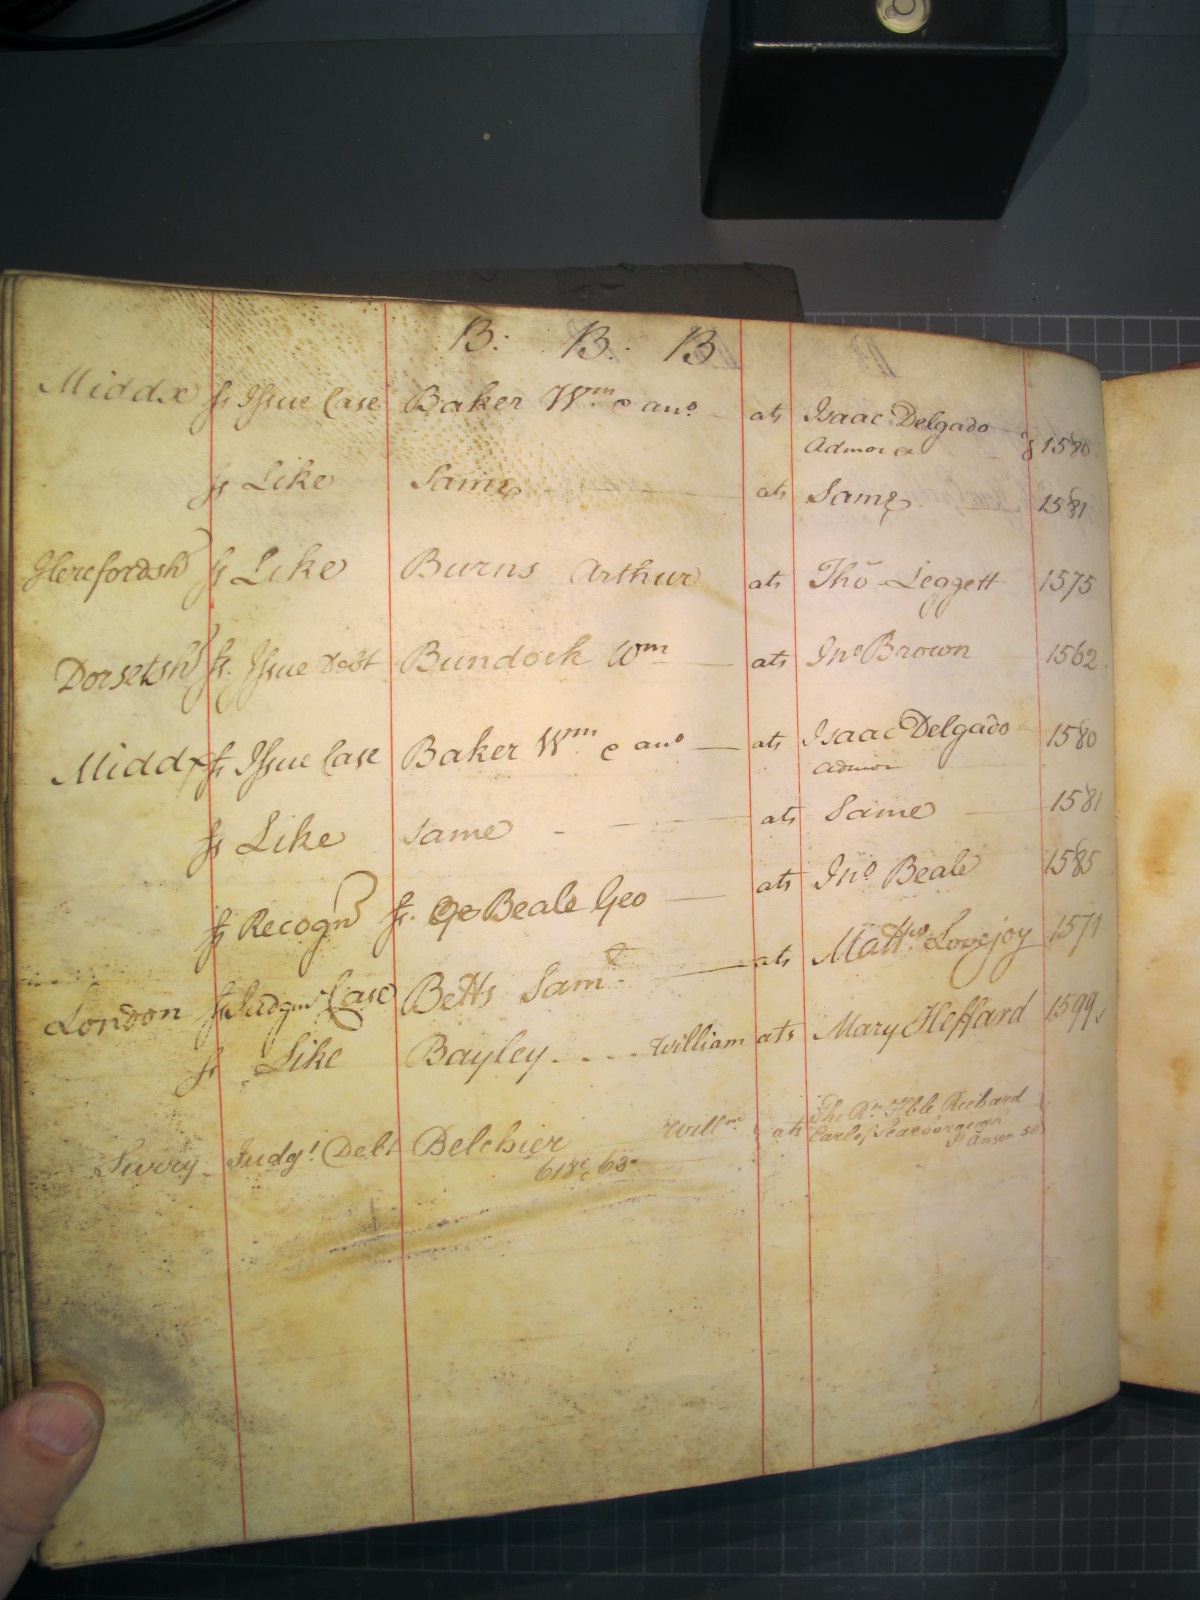 B: B: B
Middx ss Issue Case Baker Wm. & ano ats Isaac Delgado
Admor & 1580
ss Like Same ats Same 1581
Herefordsh ss Like Burns Arthur ats Tho Leggett 1575
Dorsetsh ss. Issue Debt Bundock Wm ats Jno Brown 1562
Middx ss Issue Case Baker Wm & ano ats Isaac Delgado 1580
Admor
ss Like Same ats Same 1581
ss Recogn ss. Beale Geo ats Jno Beale 1585
London ss Judgmt Case Betts Saml. ats Mattw Lovejoy 1571
ss Like Bayley William ats Mary Heffard 1599
Surry Judgt. Debt Belchier Willm ats The Rt Hble Richard
Earl of Scarborough
618 & 63 Anson 50